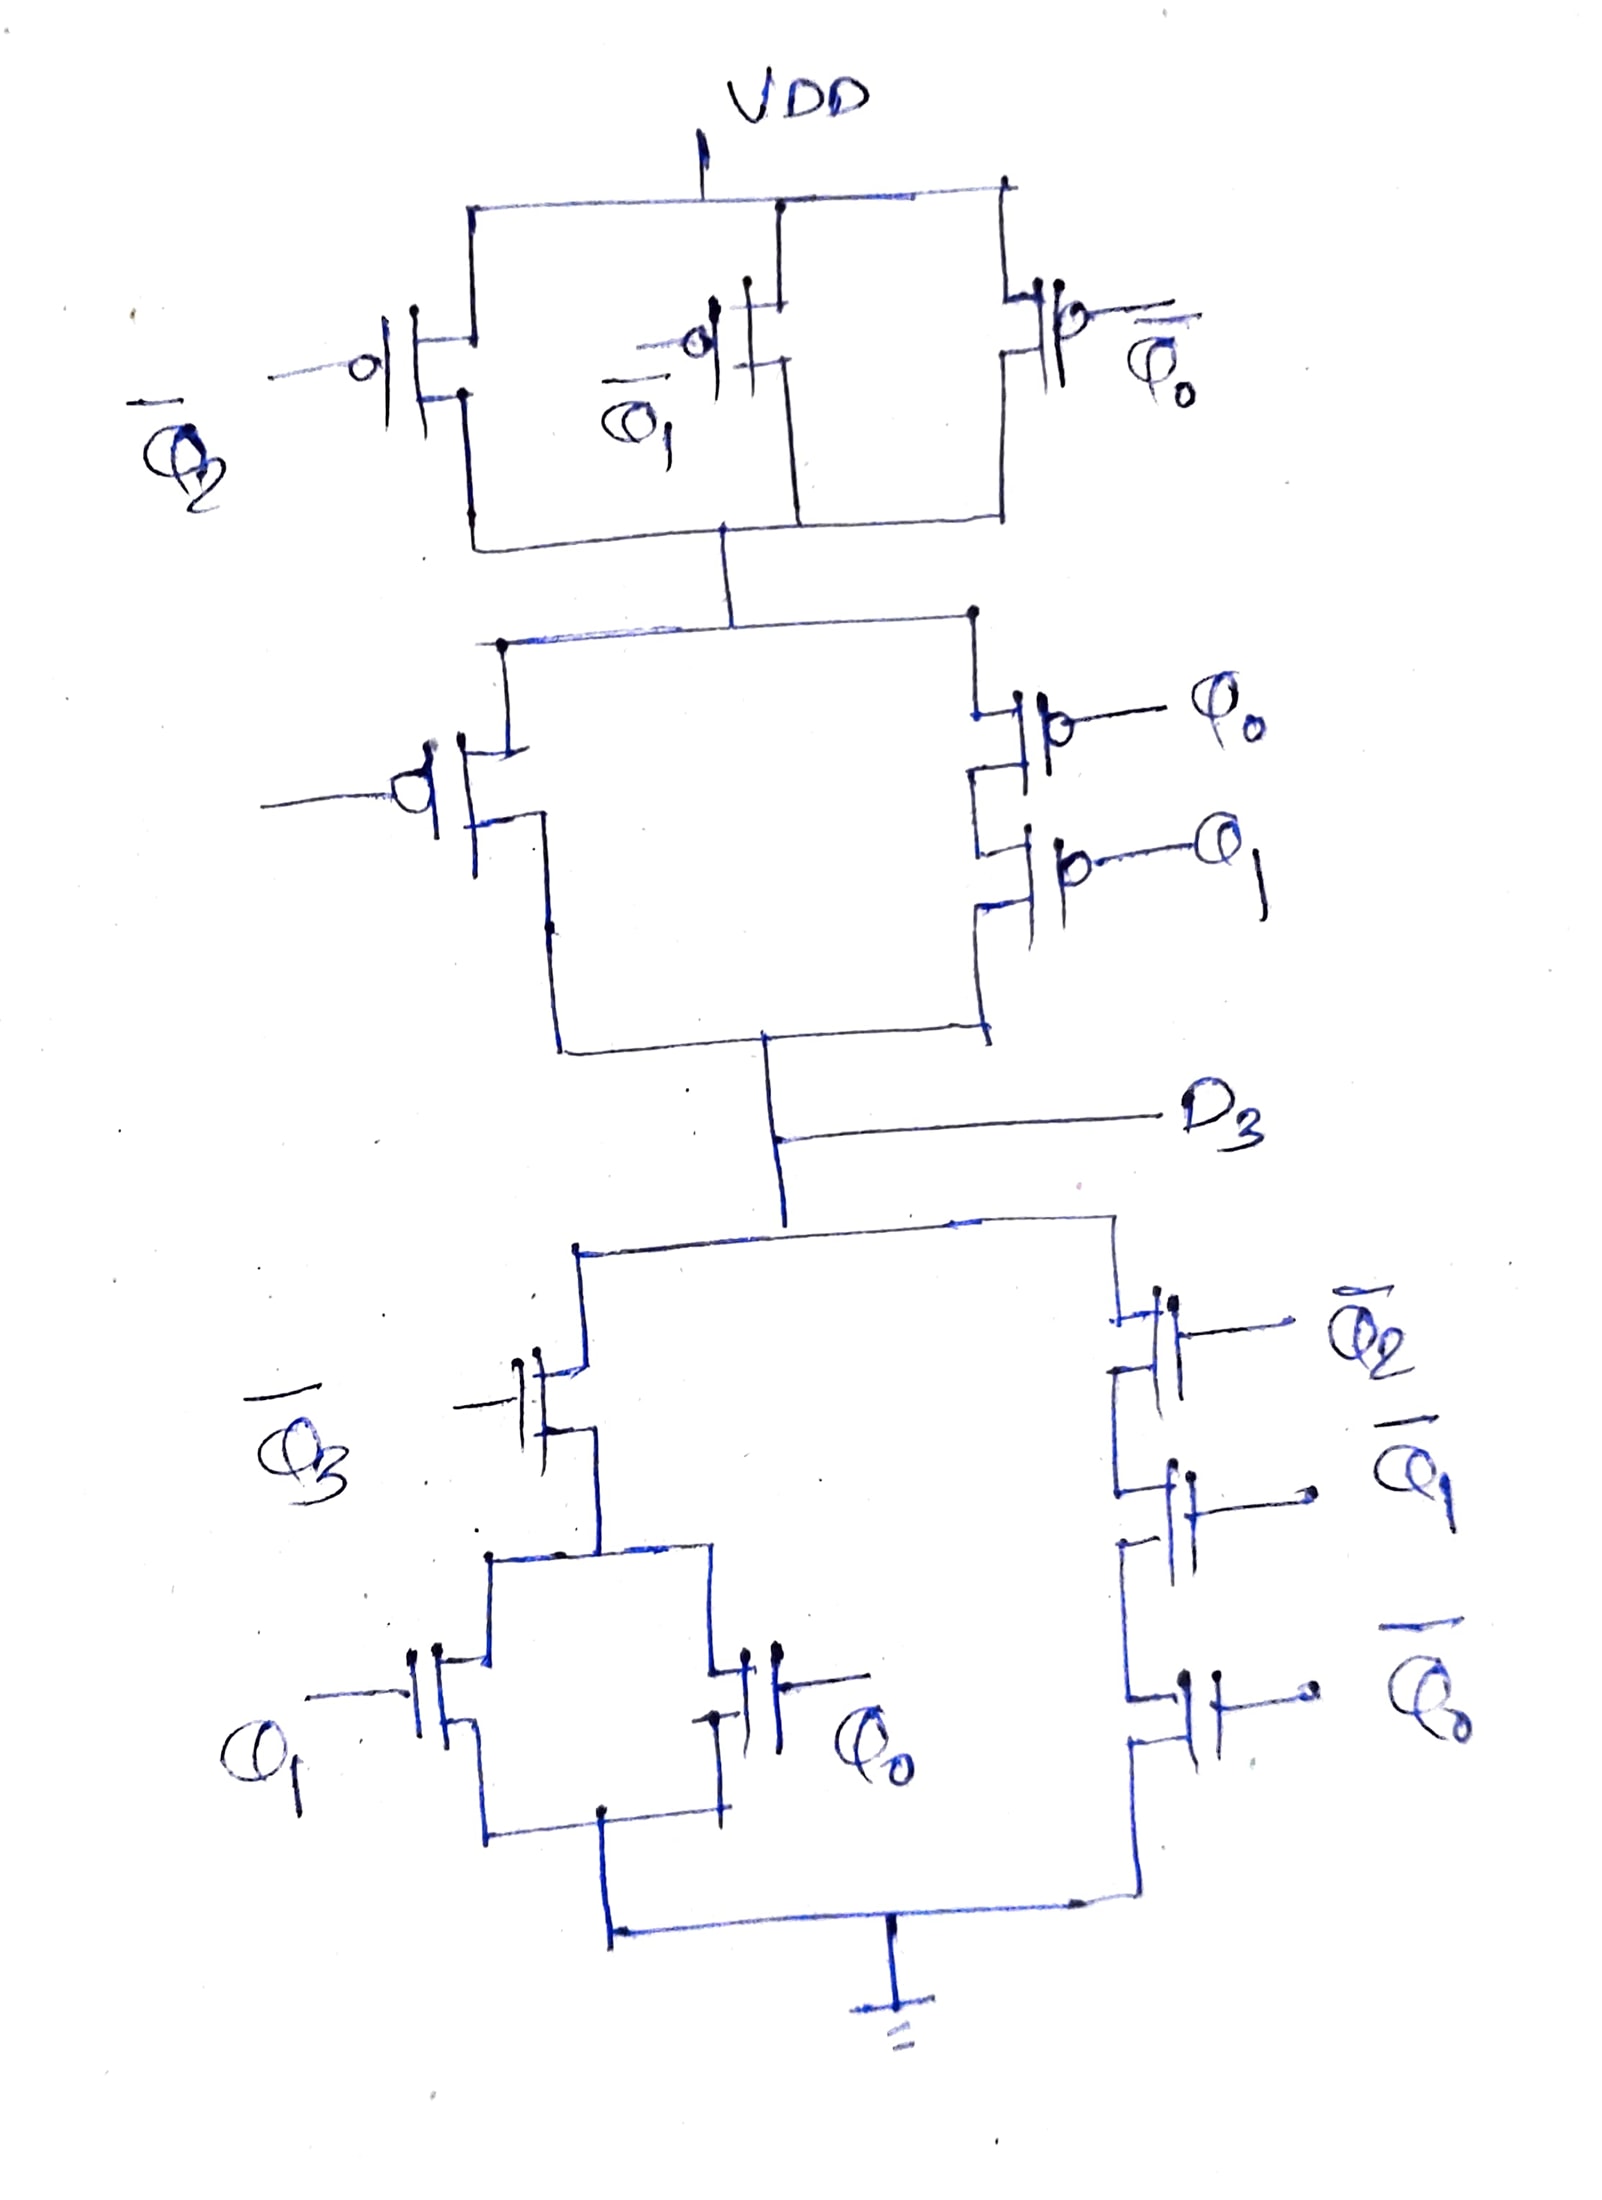 VDD
Q̅₀
Q̅₁
Q̅₂
Q₀
Q₁
D₃
Q̅₂
Q̅₃
Q̅₁
Q̅₀
Q₁
Q₀